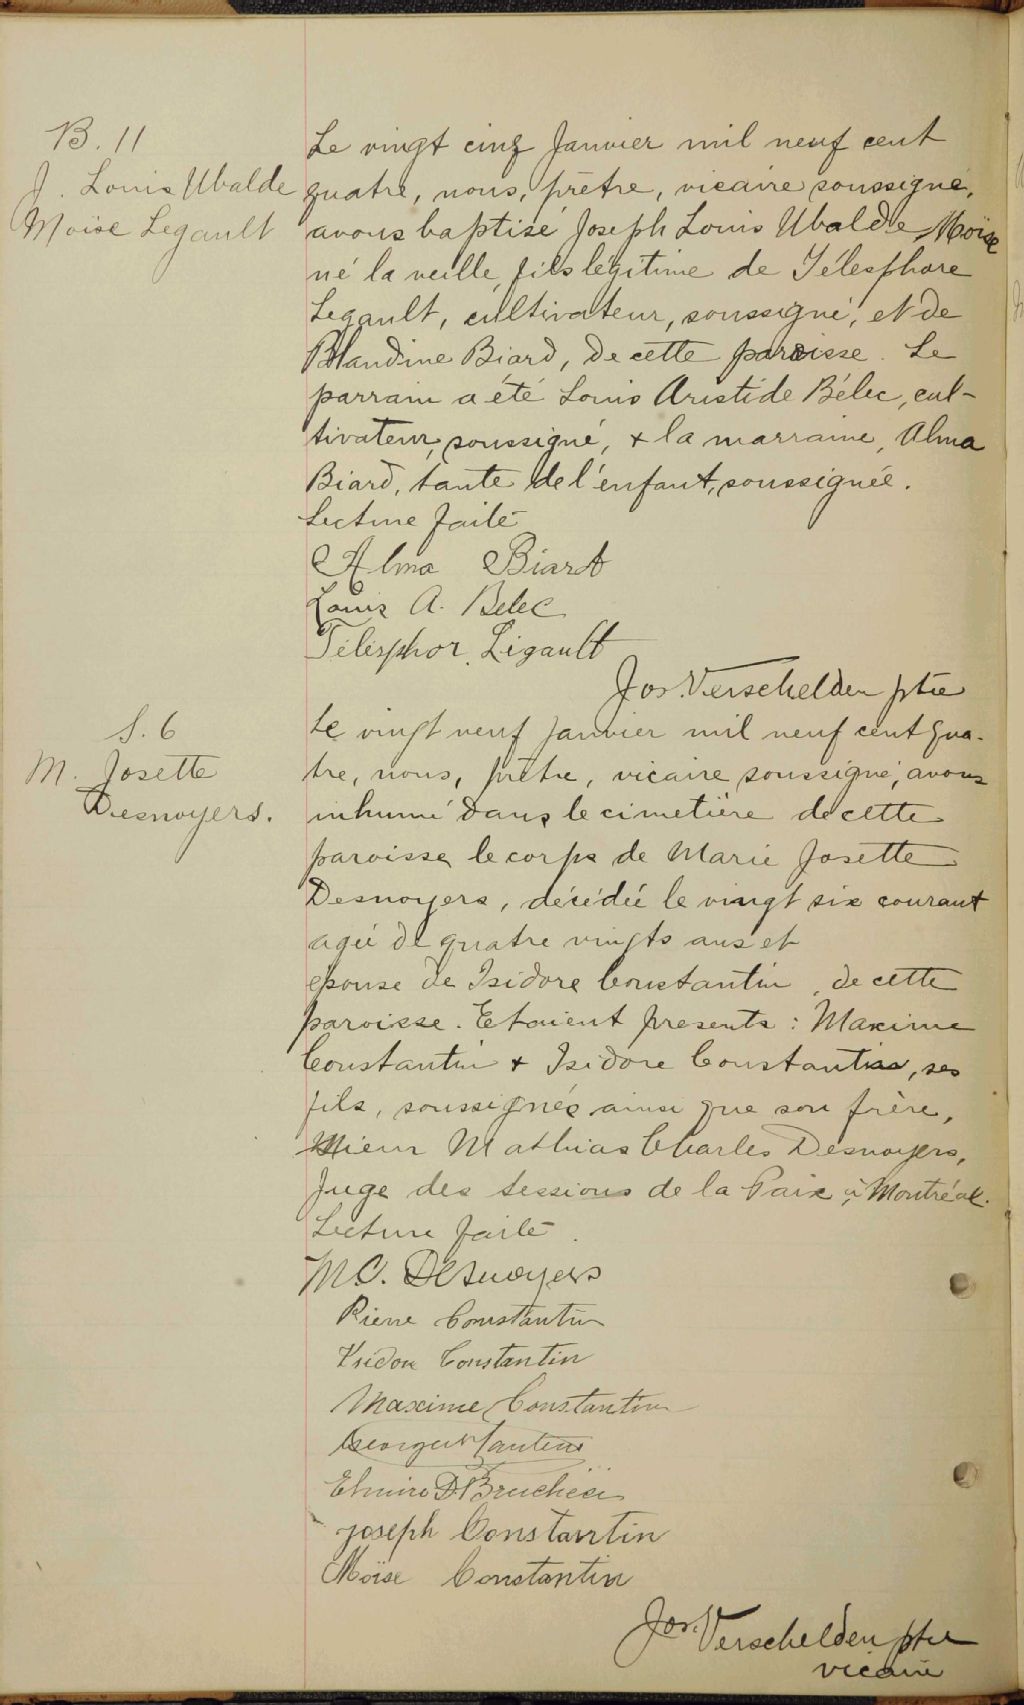 B. 11
J. Louis Ubalde
Moïse Legault
Le vingt cinq Janvier mil neuf cent
quatre, nous, prêtre, vicaire soussigné,
avons baptisé Joseph Louis Ubalde Moïse
né la veille, fils légitime de Télesphore
Legault, cultivateur, soussigné, et de
Blandine Biard, de cette paroisse. Le
parrain a été Louis Aristide Bélec, cul-
tivateur, soussigné, + la marraine, Alma
Biard, tante de l'enfant, soussignée.
Lecture faite
Alma Biard
Louis A. Belec
Télesphor Légault
Jos. Verschelden ptre
S. 6
M. Josette
Desnoyers.
Le vingt neuf janvier mil neuf cent qua-
tre, nous, prêtre, vicaire soussigné, avons
inhumé dans le cimetière de cette
paroisse le corps de Marie Josette
Desnoyers, décédée le vingt six courant
agée de quatre vingts ans et
epouse de Isidore Constantin, de cette
paroisse. Etaient presents : Maxime
Constantin + Isidore Constantin, ses
fils, soussignés ainsi que son frère,
Mathias Charles Desnoyers,
Juge des Sessions de la Paix à Montréal.
Lecture faite.
M.C. Desnoyers
Pierre Constantin
Isidore Constantin
Maxime Constantin
Elmire D. Bruchési
Joseph Constantin
Moïse Constantin
Jos. Verschelden ptre
vicaire